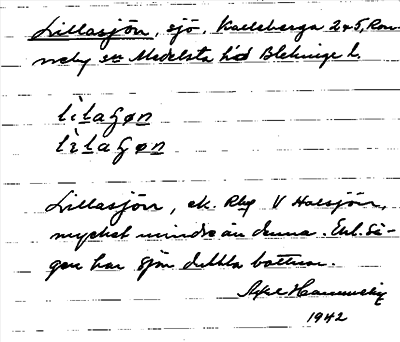 Lillasjön, sjö, Karlsberga 2 4-5, Ron-
neby sn Medelsta hd Blekinge l.
lìlaʃøn
lìlaʃøn
Lillasjön, ek. Rby V Halsjön,
mycket mindre än denna. Enl. sä-
gen har sjön dubbla bottnar.
Åke
1942